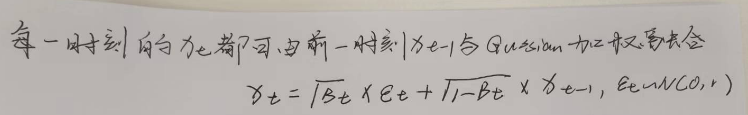 每一时刻的 xt 都可由前一时刻 xt-1 与 Guassian 加权混合
xt = √Bt × εt + √1-Bt × xt-1, εt~N(0,1)